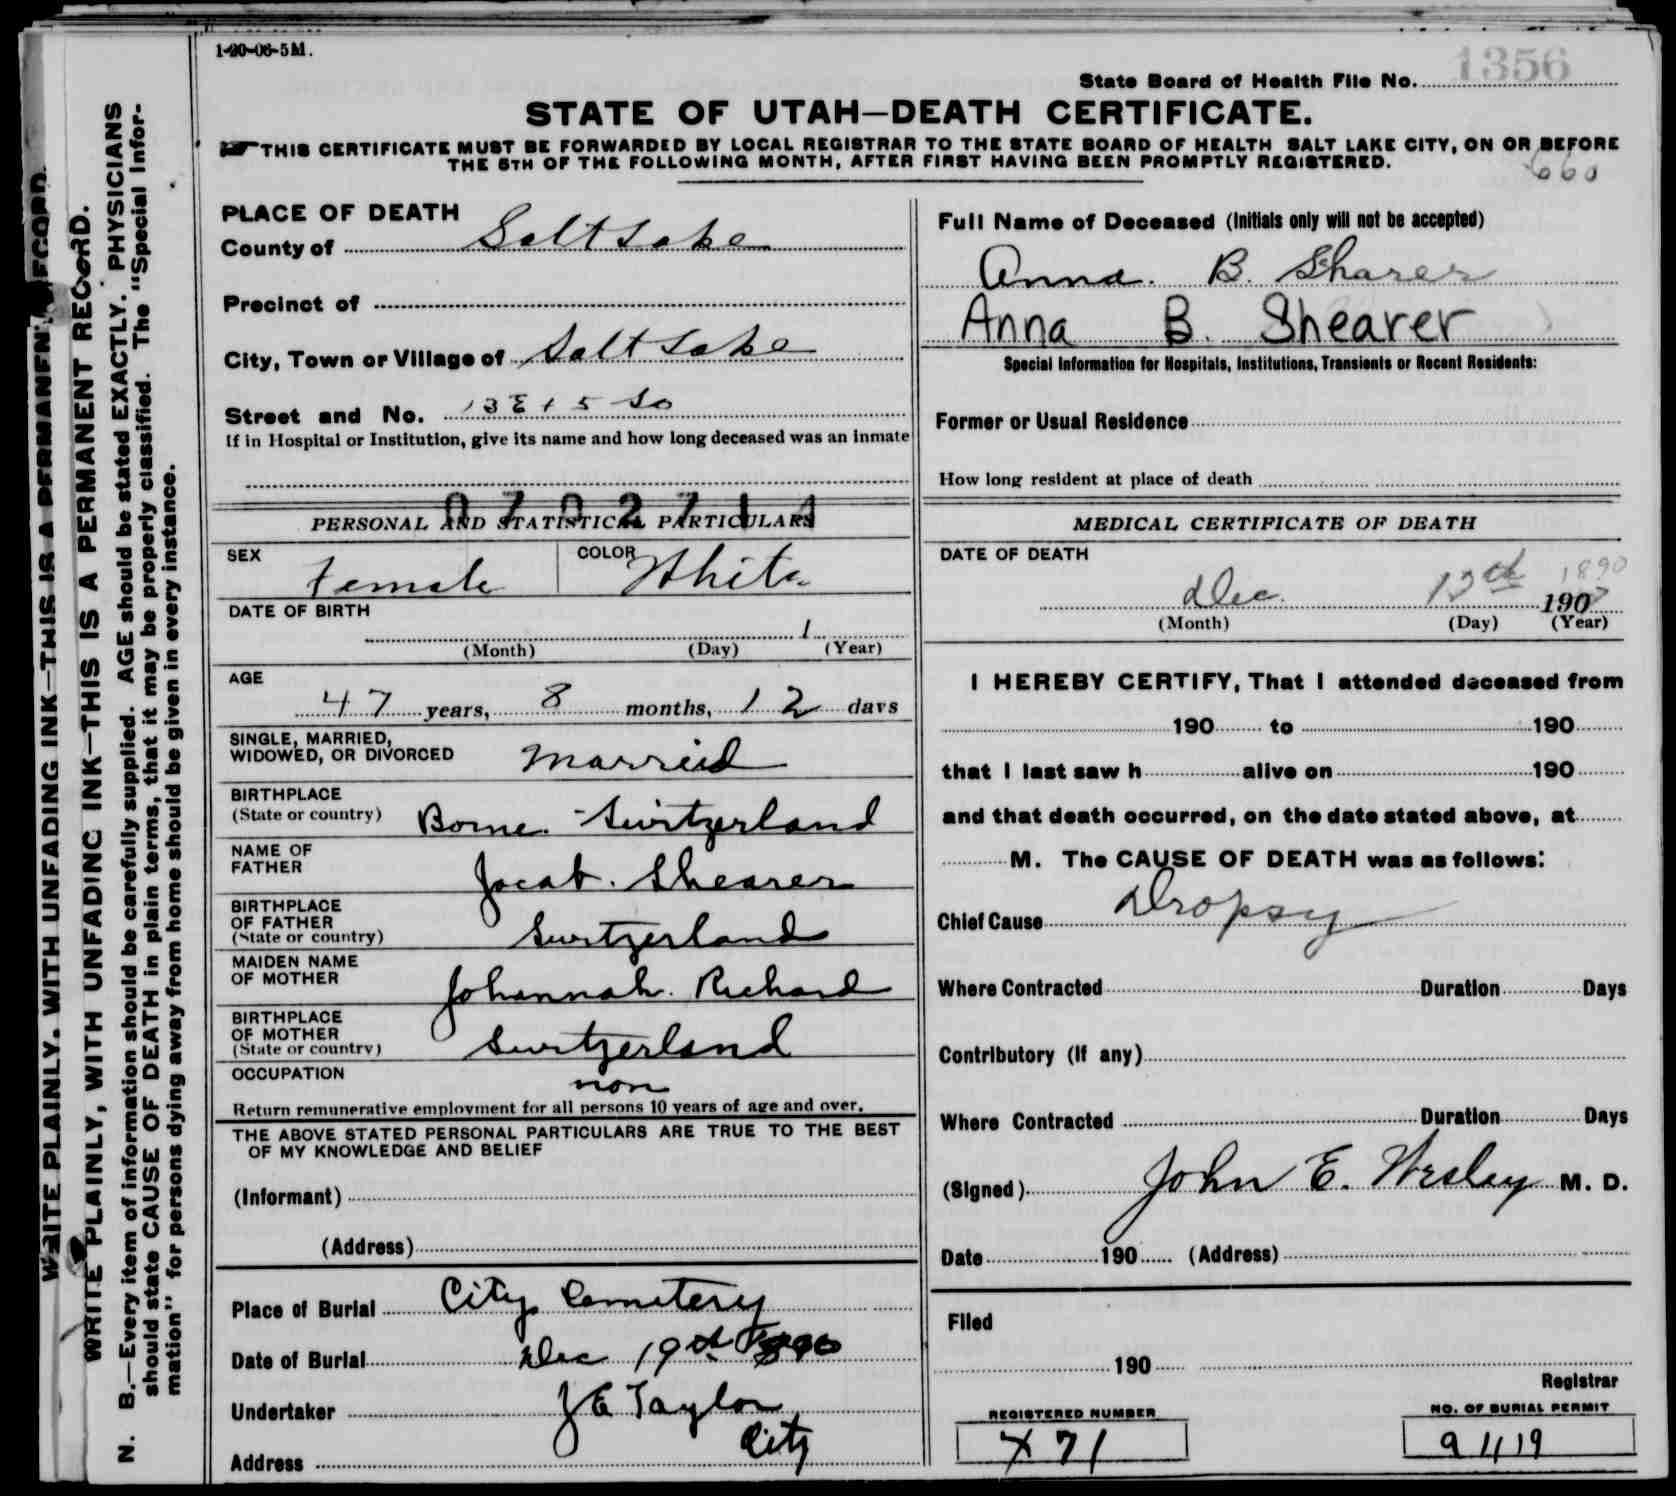 1-20-06-5M.
1356
State Board of Health File No.
STATE OF UTAH—DEATH CERTIFICATE.
THIS CERTIFICATE MUST BE FORWARDED BY LOCAL REGISTRAR TO THE STATE BOARD OF HEALTH SALT LAKE CITY, ON OR BEFORE
THE 5TH OF THE FOLLOWING MONTH, AFTER FIRST HAVING BEEN PROMPTLY REGISTERED.
660
WRITE PLAINLY, WITH UNFADING INK—THIS IS A PERMANENT RECORD.
WRITE PLAINLY, WITH UNFADING INK—THIS IS A PERMANENT RECORD.
N. B.—Every item of information should be carefully supplied. AGE should be stated EXACTLY. PHYSICIANS
should state CAUSE OF DEATH in plain terms, that it may be properly classified. The "Special Infor-
mation" for persons dying away from home should be given in every instance.
PLACE OF DEATH
County of Salt Lake
Precinct of
City, Town or Village of Salt Lake
Street and No. 13 E + 5 So
If in Hospital or Institution, give its name and how long deceased was an inmate
PERSONAL AND STATISTICAL PARTICULARS
SEX Female COLOR White
DATE OF BIRTH
1
(Month) (Day) (Year)
AGE
47 years, 8 months, 12 days
SINGLE, MARRIED,
WIDOWED, OR DIVORCED Married
BIRTHPLACE
(State or country) Borne Switzerland
NAME OF
FATHER Jacob. Shearer
BIRTHPLACE
OF FATHER
(State or country) Switzerland
MAIDEN NAME
OF MOTHER Johannah. Richard
BIRTHPLACE
OF MOTHER
(State or country) Switzerland
OCCUPATION non
Return remunerative employment for all persons 10 years of age and over.
THE ABOVE STATED PERSONAL PARTICULARS ARE TRUE TO THE BEST
OF MY KNOWLEDGE AND BELIEF
(Informant)
(Address)
Place of Burial City Cemetery
Date of Burial Dec 19th 1890
Undertaker J E Taylor
City
Address
Full Name of Deceased (Initials only will not be accepted)
Anna. B. Sharer
Anna B. Shearer
Special Information for Hospitals, Institutions, Transients or Recent Residents:
Former or Usual Residence
How long resident at place of death
MEDICAL CERTIFICATE OF DEATH
DATE OF DEATH
1890
Dec. 13th 190
(Month) (Day) (Year)
I HEREBY CERTIFY, That I attended deceased from
190 to 190
that I last saw h alive on 190
and that death occurred, on the date stated above, at
M. The CAUSE OF DEATH was as follows:
Chief Cause Dropsy
Where Contracted Duration Days
Contributory (If any)
Where Contracted Duration Days
(Signed) John E. Wesley M. D.
Date 190 (Address)
Filed
190
Registrar
REGISTERED NUMBER
X 71
NO. OF BURIAL PERMIT